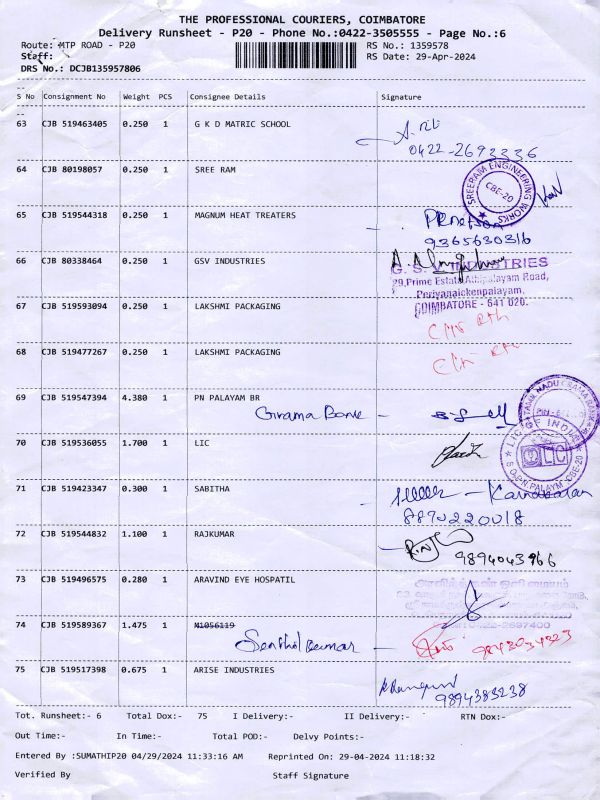 THE PROFESSIONAL COURIERS, COIMBATORE
Delivery Runsheet - P20 - Phone No.:0422-3505555 - Page No.:6
Route: MTP ROAD - P20 RS No.: 1359578
Staff: RS Date: 29-Apr-2024
DRS No.: DCJB135957806
S No Consignment No Weight PCS Consignee Details Signature
63 CJB 519463405 0.250 1 G K D MATRIC SCHOOL
0422-2692336
64 CJB 80198057 0.250 1 SREE RAM
SREERAM ENGINEERING WORKS
CBE-20
65 CJB 519544318 0.250 1 MAGNUM HEAT TREATERS
9365630316
66 CJB 80338464 0.250 1 GSV INDUSTRIES
INDUSTRIES
29,Prime Estate, Athipalayam Road,
Periyanaickenpalayam,
COIMBATORE - 641 020.
67 CJB 519593094 0.250 1 LAKSHMI PACKAGING
68 CJB 519477267 0.250 1 LAKSHMI PACKAGING
69 CJB 519547394 4.380 1 PN PALAYAM BR
Grama Bank
TAMIL NADU GRAMA BANK
70 CJB 519536055 1.700 1 LIC
LIC OF INDIA
LIC
71 CJB 519423347 0.300 1 SABITHA
8870220018
72 CJB 519544832 1.100 1 RAJKUMAR
9894043966
73 CJB 519496575 0.280 1 ARAVIND EYE HOSPATIL
74 CJB 519589367 1.475 1 M1056119
Senthil Kumar 9843034323
75 CJB 519517398 0.675 1 ARISE INDUSTRIES
9894383238
Tot. Runsheet:- 6 Total Dox:- 75 I Delivery:- II Delivery:- RTN Dox:-
Out Time:- In Time:- Total POD:- Delvy Points:-
Entered By :SUMATHIP20 04/29/2024 11:33:16 AM Reprinted On: 29-04-2024 11:18:32
Verified By Staff Signature